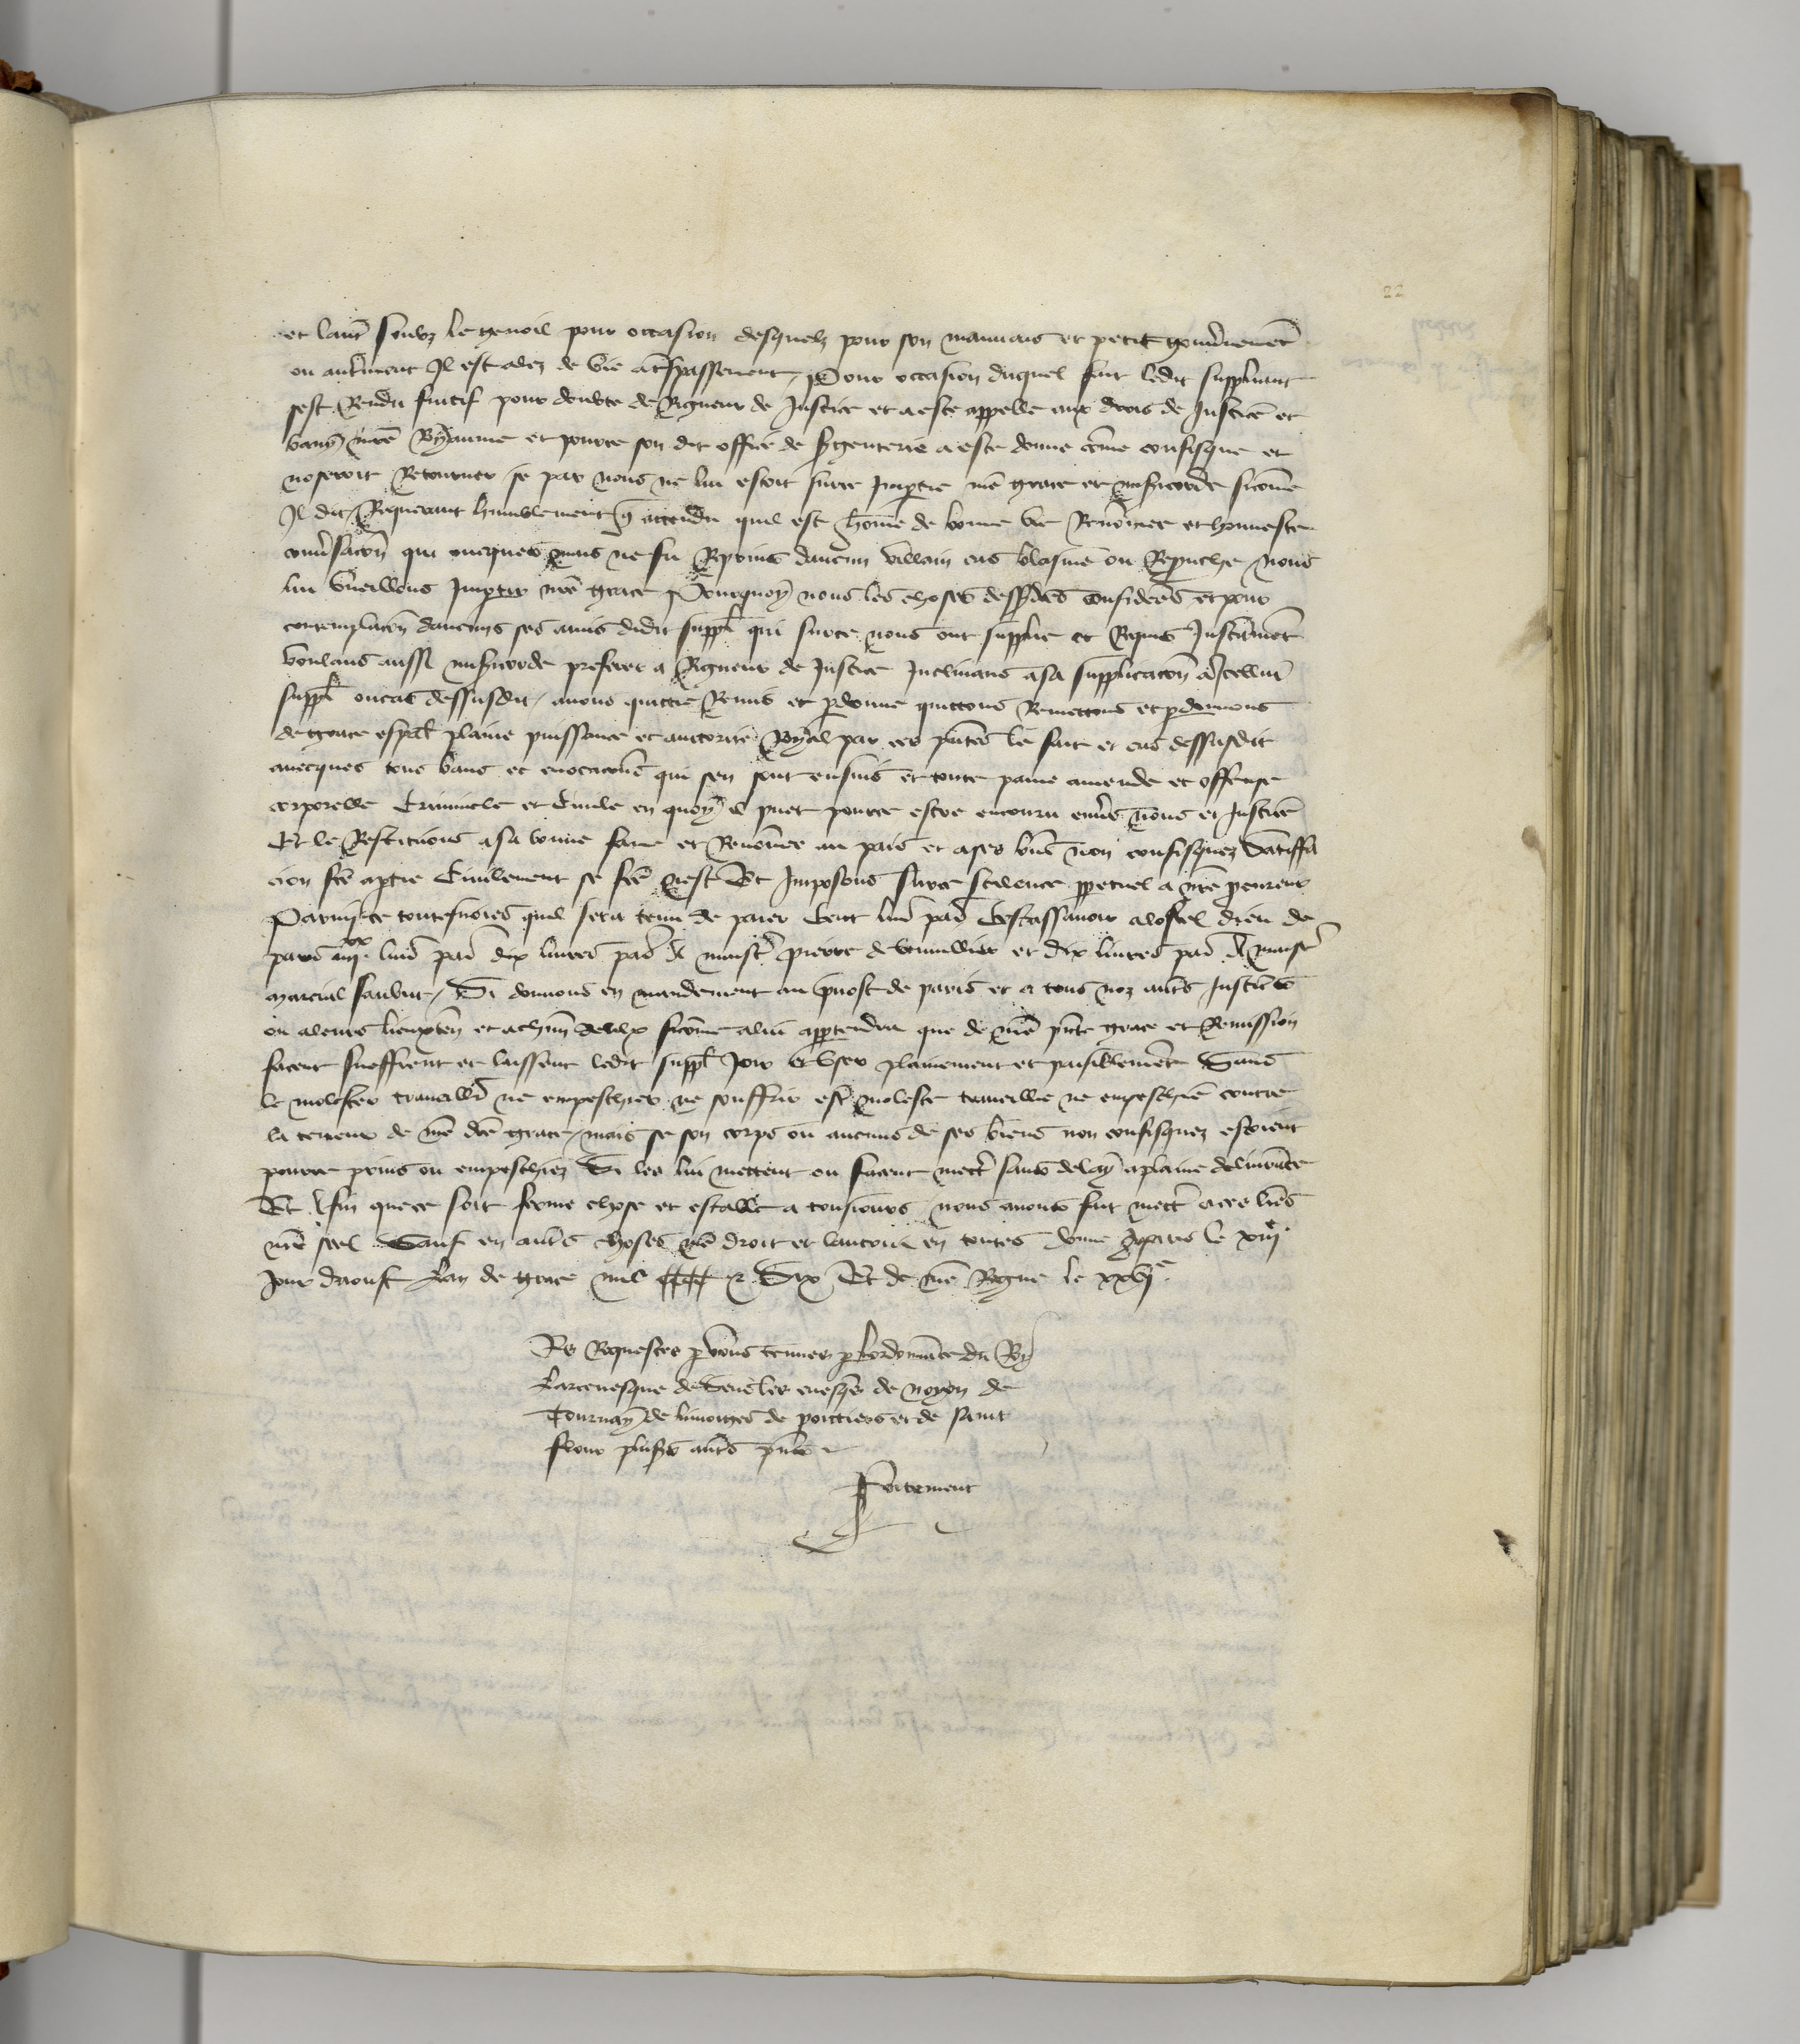 22
et laut̄ soubz le genoil pour occasion desquelz pour son mauuais et petit gouūnemēt
ou autrement Il est alez de vie a tr̄spassement / Pour occasion duquel fait ledit suppliant
sest Rendu fuitif pour doubte de Rigueur de Justice et a este appelle aux drois de Justice et
bany nr̄e Royaume et pource son dit office de sergenterie a este donne cōme confisque et
noseroit Retourner se par nous ne lui estoit sur ce Impartie nr̄e grace et misericorde sicōme
Il dit / Requerant humblement q̄ attendu quil est hōme de bonne vie Renōmee et honneste
conūsacōn qui oncques mais ne fu Reprins daucun villain cas blasme ou Reprouche / nous
lui vueillons Impartir nr̄e grace Pourquoy nous les choses dess̄dctēs considerēs et pour
contemplacōn daucuns ses amis dudit supplī qui sur ce nous ont supplie et Requis Instāment
voulans aussi misericorde preferer a Rigueur de Justice Inclinans a sa supplicacōn a Icellui
supplī ou cas dessusdit / auons quittie Remis et pardonne quittons Remettons et pardonnons
de grace espāl plaine puissance et auctorite Royal par ces pn̄tes le fait et cas dessusdit
auecques tous bans et euocacōns qui sen sont ensuis et toute paine amende et offense
corporelle Criminele et Ciuile en quoy il puet pource estre encouru enūs nous et Justice
Et le Restituons a sa bonne fame et Renōmee au pais et a ses biēs non confisquez Satisfa
cion fcē a partie Ciuilement se fcē nest Et Imposons sur ce scilence perpetuel a nr̄e procureur
Parmi ce toutesuoies quil sera tenu de paier Cent liūr par̄ Cestassauoir a lostel dieu de
paris iiijxx liūr par̄ dix liures par̄ a maistr̄ pierre de et dix liures par̄ a maistr̄
marcial / Si donnons en mandement au preuost de paris et a tous noz autrēs Justicīers
ou a leurs lieuxten̄ et a chūn deulx sicōme a lui appartendra que de nr̄e pn̄te grace et Remission
facent sueffrent et laissent ledit supplī Joir et vser plainement et paisiblement Sans
le molester trauaillier ne empeschier ne souffrir estr̄ moleste trauaillie ne empeschie contre
la teneur de nr̄e dcē grace / mais se son corps ou aucuns de ses biens non confisquez estoient
pource prins ou empeschiez Si les lui mettent ou facent mettr̄ sans delay a plaine deliurāce
Et afin que ce soit ferme chose et estable a tousiours / nous auons fait mettr̄ a ces lrēs
nr̄e seel Sauf en autrēs choses nr̄e droit et lautrui en toutes Donne a paris le xiije
Jour daoust Lan de grace mil cccc & Six Et de nr̄e Regne le xxvje
Es Requestes par vous tenues par lordonnāce du Roy
Larceuesque de Sens les euesqūes de noyon de
Tournay de limoges de poitiers et de saint
flour plusrs̄ autrēs pn̄s
Freitement